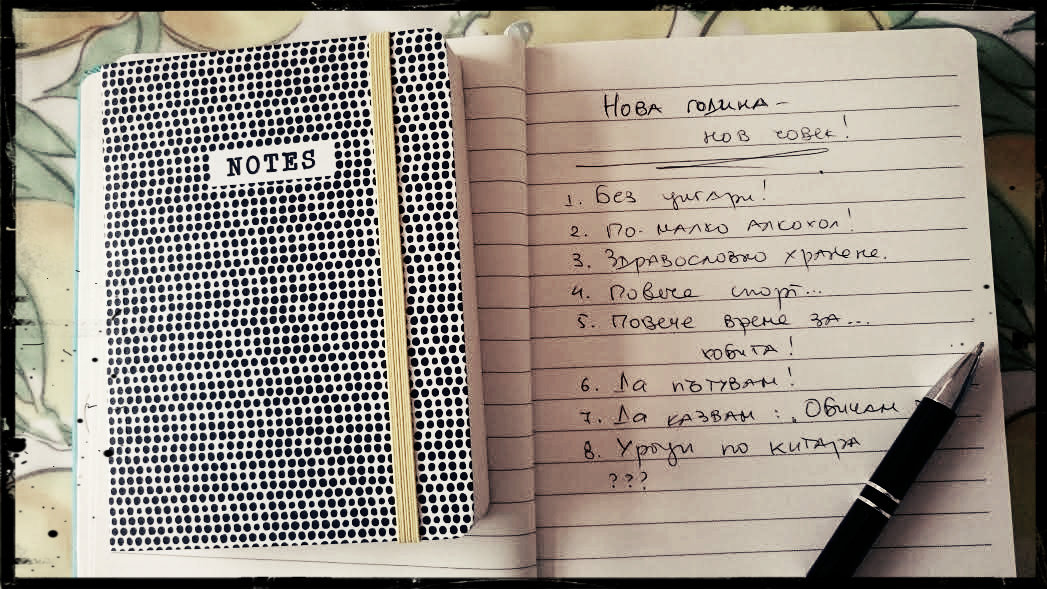 NOTES
Нова година -
нов човек!
1. Без цигари!
2. По-малко алкохол!
3. Здравословно хранене.
4. Повече спорт...
5. Повече време за...
хобита!
6. Да пътувам!
7. Да казвам: „Обичам
8. Уроци по китара
???